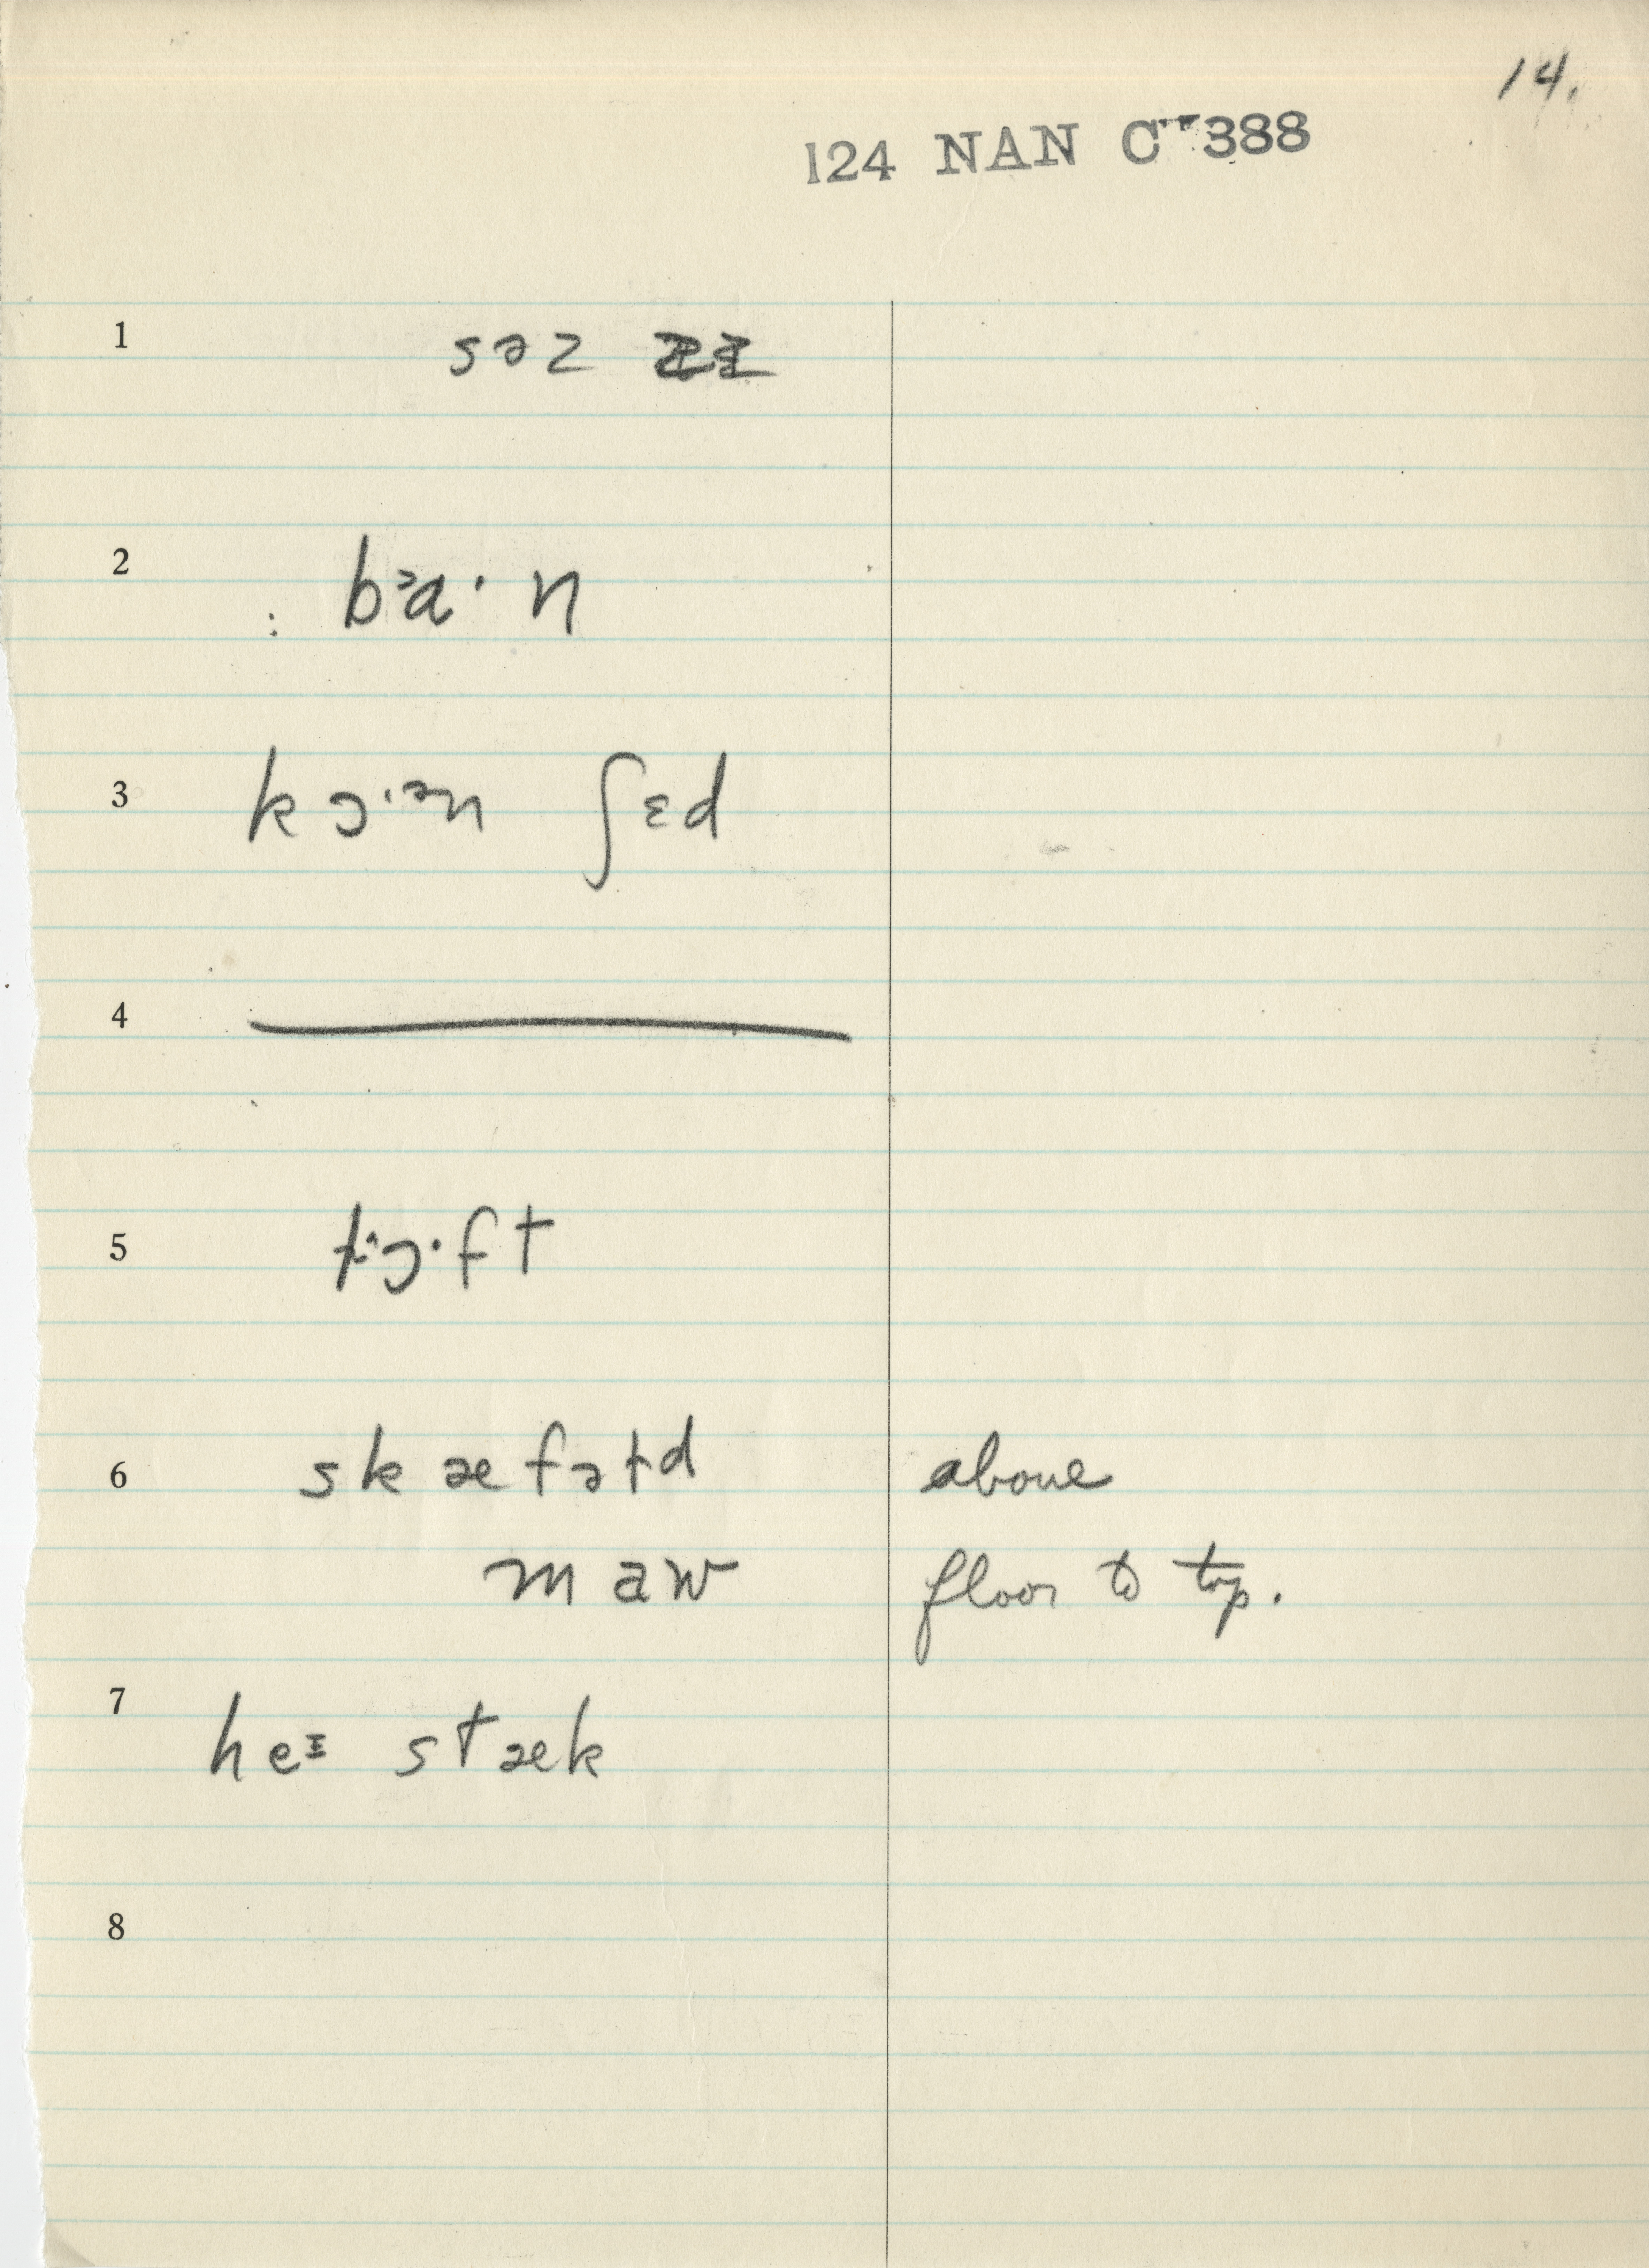 14.
124 NAN C 388
1 səz
2 bᵊa· n
3 kɔ·ᵊn ʃɛd
4
5 lɔ·ft
6 skæfəld above
maw floor to top.
7 heᶤ stæk
8